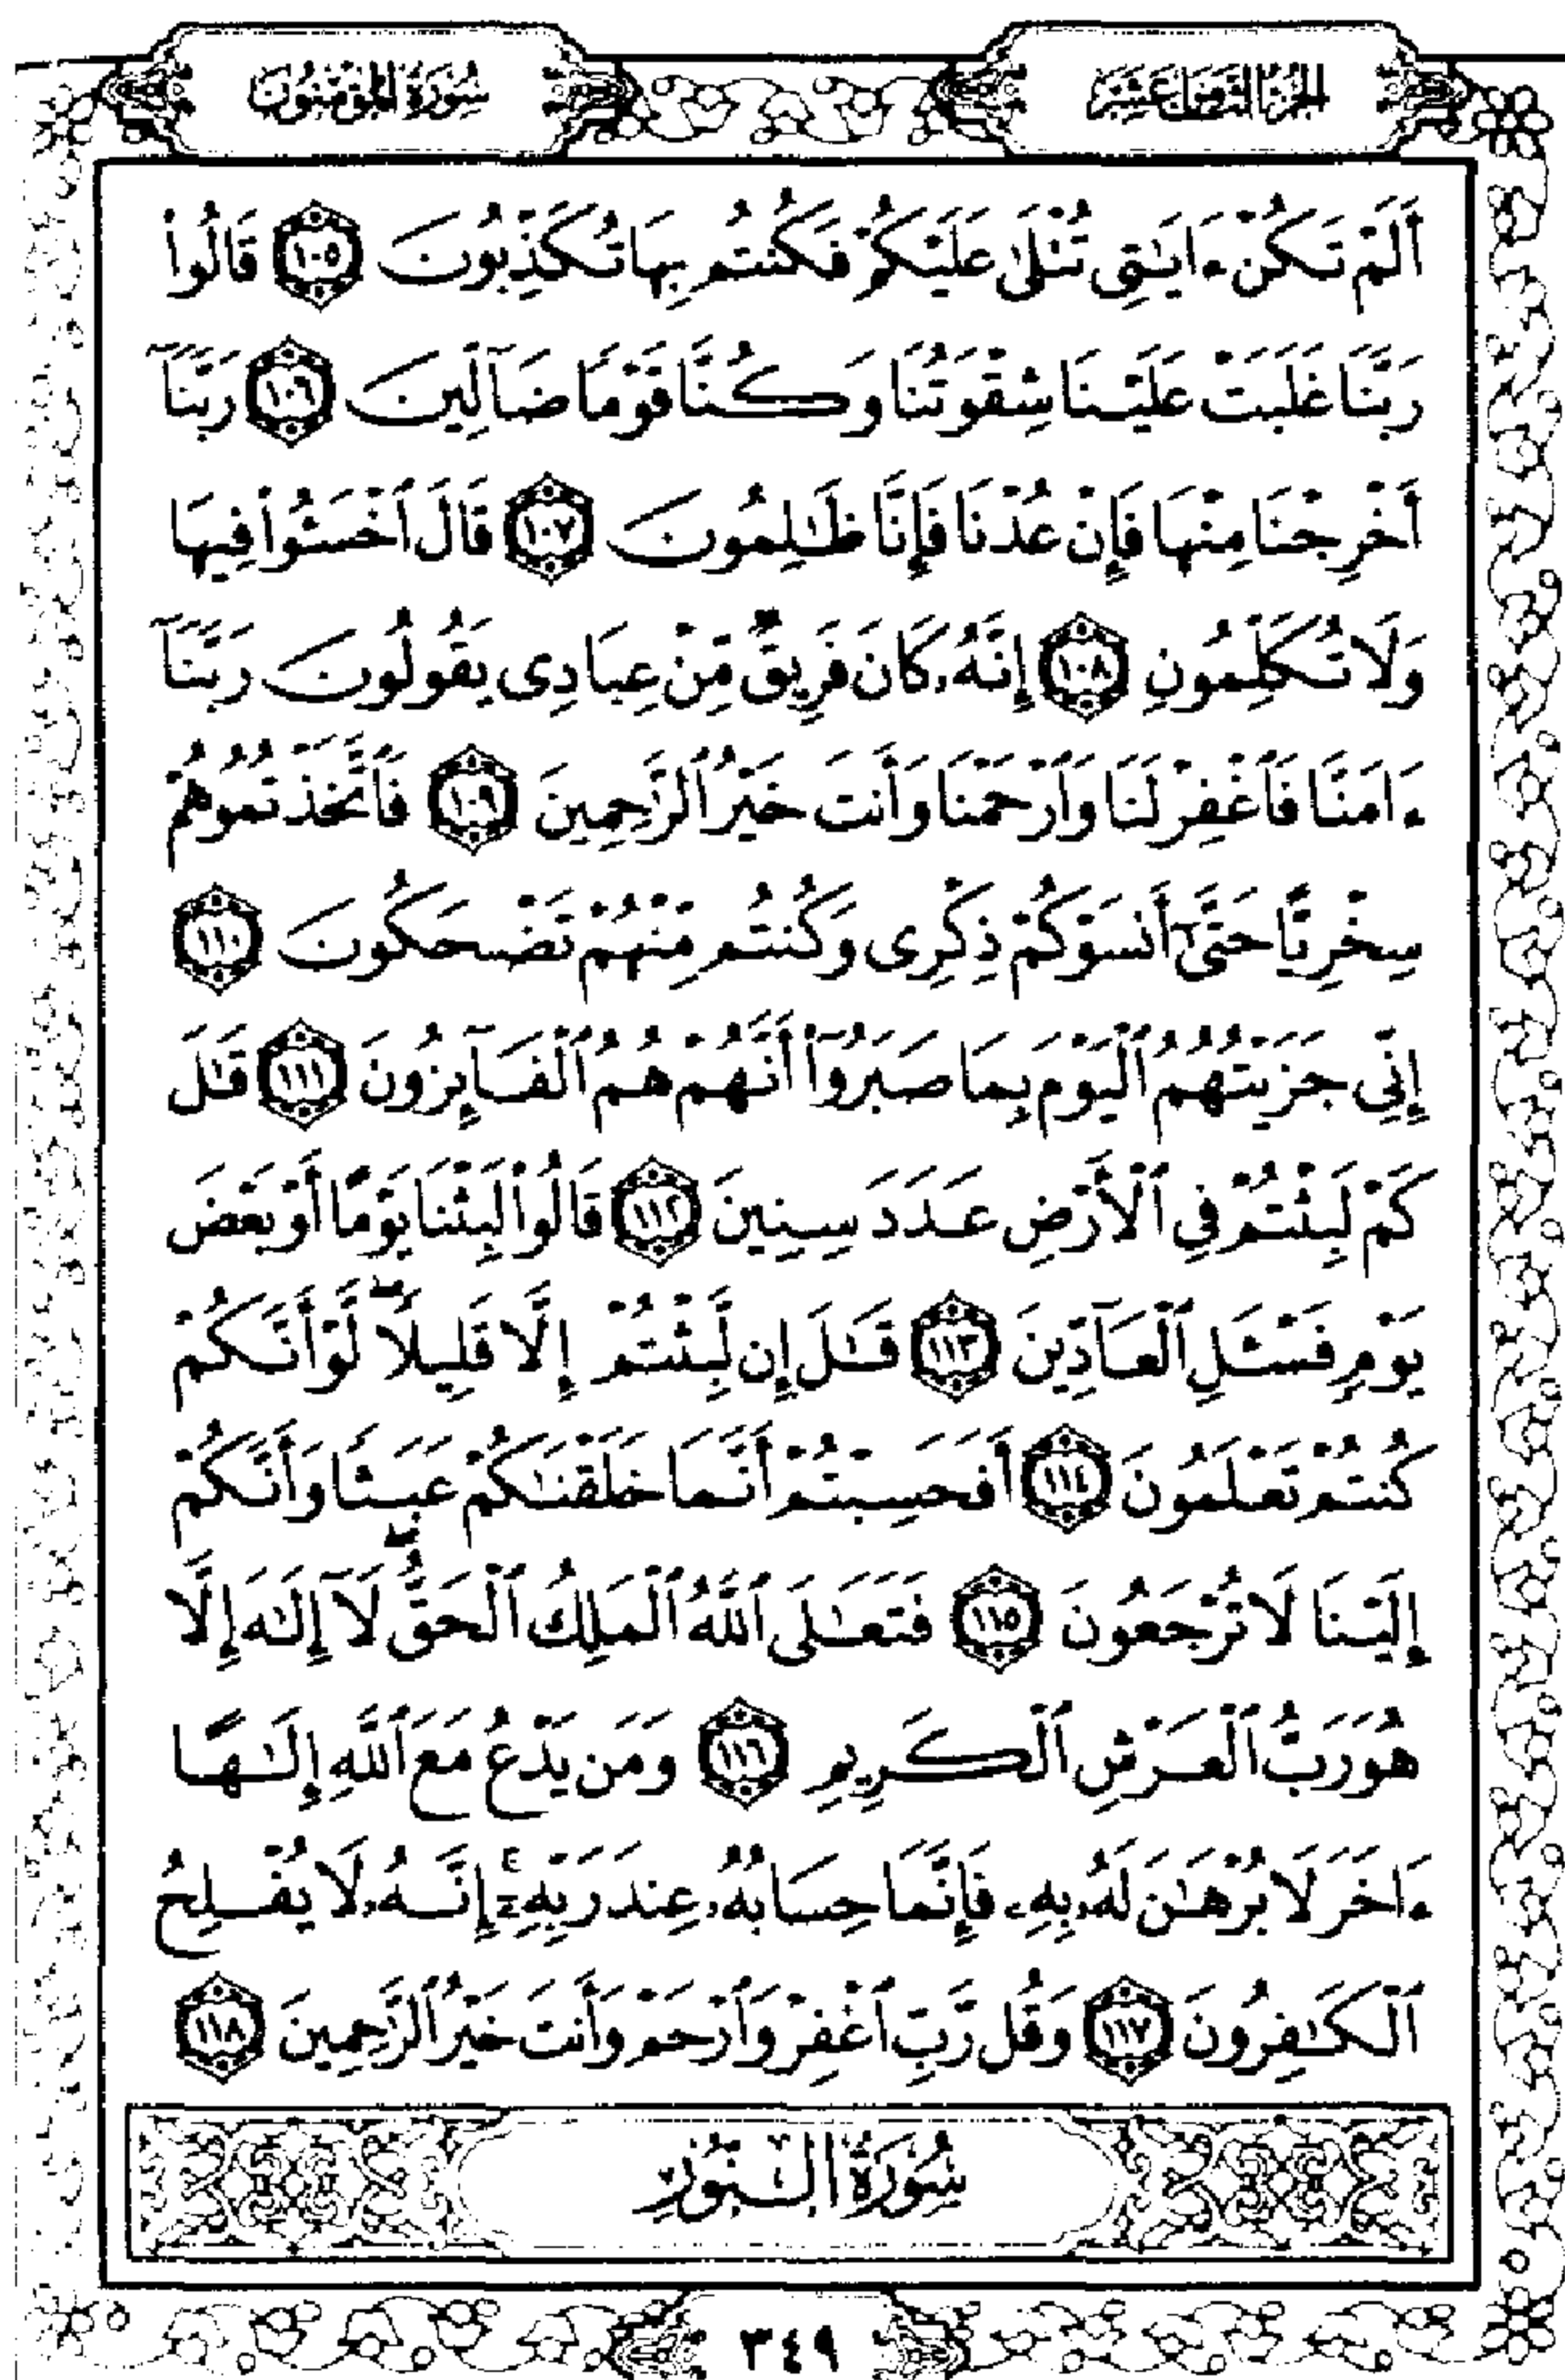 الجزء الثامن عشر
سورة المؤمنون
أَلَمْ تَكُنْ ءَايَـٰتِى تُتْلَىٰ عَلَيْكُمْ فَكُنتُم بِهَا تُكَذِّبُونَ ١٠٥ قَالُوا۟
رَبَّنَا غَلَبَتْ عَلَيْنَا شِقْوَتُنَا وَكُنَّا قَوْمًا ضَآلِّينَ ١٠٦ رَبَّنَآ
أَخْرِجْنَا مِنْهَا فَإِنْ عُدْنَا فَإِنَّا ظَـٰلِمُونَ ١٠٧ قَالَ ٱخْسَـُٔوا۟ فِيهَا
وَلَا تُكَلِّمُونِ ١٠٨ إِنَّهُۥ كَانَ فَرِيقٌ مِّنْ عِبَادِى يَقُولُونَ رَبَّنَآ
ءَامَنَّا فَٱغْفِرْ لَنَا وَٱرْحَمْنَا وَأَنتَ خَيْرُ ٱلرَّٰحِمِينَ ١٠٩ فَٱتَّخَذْتُمُوهُمْ
سِخْرِيًّا حَتَّىٰٓ أَنسَوْكُمْ ذِكْرِى وَكُنتُم مِّنْهُمْ تَضْحَكُونَ ١١٠
إِنِّى جَزَيْتُهُمُ ٱلْيَوْمَ بِمَا صَبَرُوٓا۟ أَنَّهُمْ هُمُ ٱلْفَآئِزُونَ ١١١ قَـٰلَ
كَمْ لَبِثْتُمْ فِى ٱلْأَرْضِ عَدَدَ سِنِينَ ١١٢ قَالُوا۟ لَبِثْنَا يَوْمًا أَوْ بَعْضَ
يَوْمٍ فَسْـَٔلِ ٱلْعَآدِّينَ ١١٣ قَـٰلَ إِن لَّبِثْتُمْ إِلَّا قَلِيلًا ۖ لَّوْ أَنَّكُمْ
كُنتُمْ تَعْلَمُونَ ١١٤ أَفَحَسِبْتُمْ أَنَّمَا خَلَقْنَـٰكُمْ عَبَثًا وَأَنَّكُمْ
إِلَيْنَا لَا تُرْجَعُونَ ١١٥ فَتَعَـٰلَى ٱللَّهُ ٱلْمَلِكُ ٱلْحَقُّ ۖ لَآ إِلَـٰهَ إِلَّا
هُوَ رَبُّ ٱلْعَرْشِ ٱلْكَرِيمِ ١١٦ وَمَن يَدْعُ مَعَ ٱللَّهِ إِلَـٰهًا
ءَاخَرَ لَا بُرْهَـٰنَ لَهُۥ بِهِۦ فَإِنَّمَا حِسَابُهُۥ عِندَ رَبِّهِۦٓ ۚ إِنَّهُۥ لَا يُفْلِحُ
ٱلْكَـٰفِرُونَ ١١٧ وَقُل رَّبِّ ٱغْفِرْ وَٱرْحَمْ وَأَنتَ خَيْرُ ٱلرَّٰحِمِينَ ١١٨
سُورَةُ النُّورِ
٣٤٩